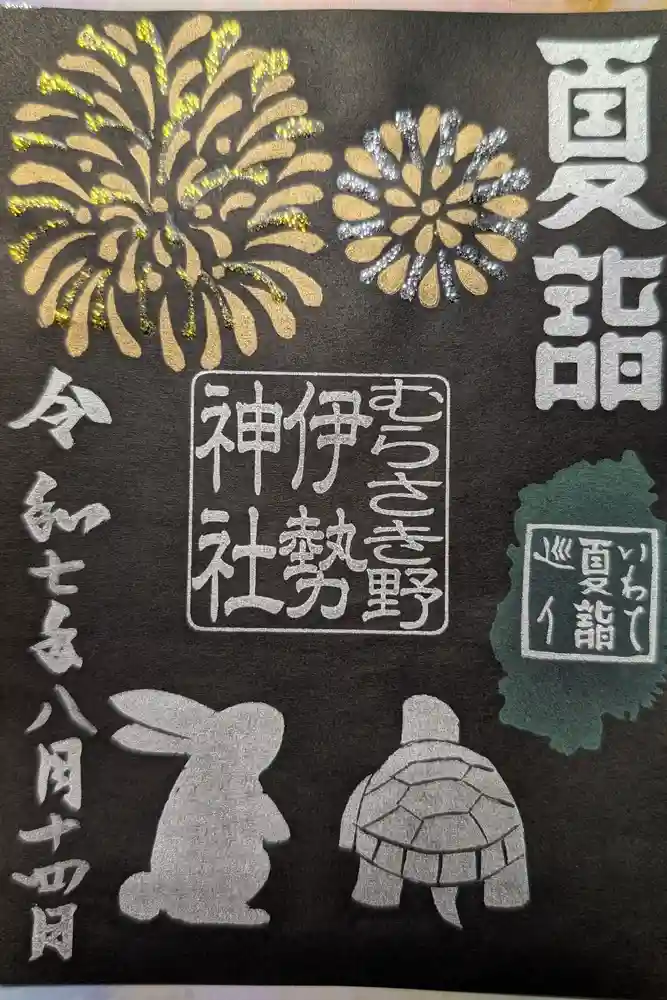 夏詣
むらさき野
伊勢
神社
いわて
夏詣
巡イ
令和七年八月十四日